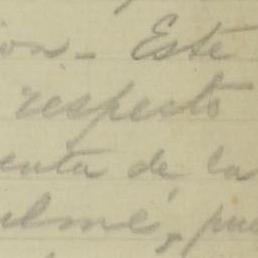 ion - Este
respecto
enta de la
ulmé, pue